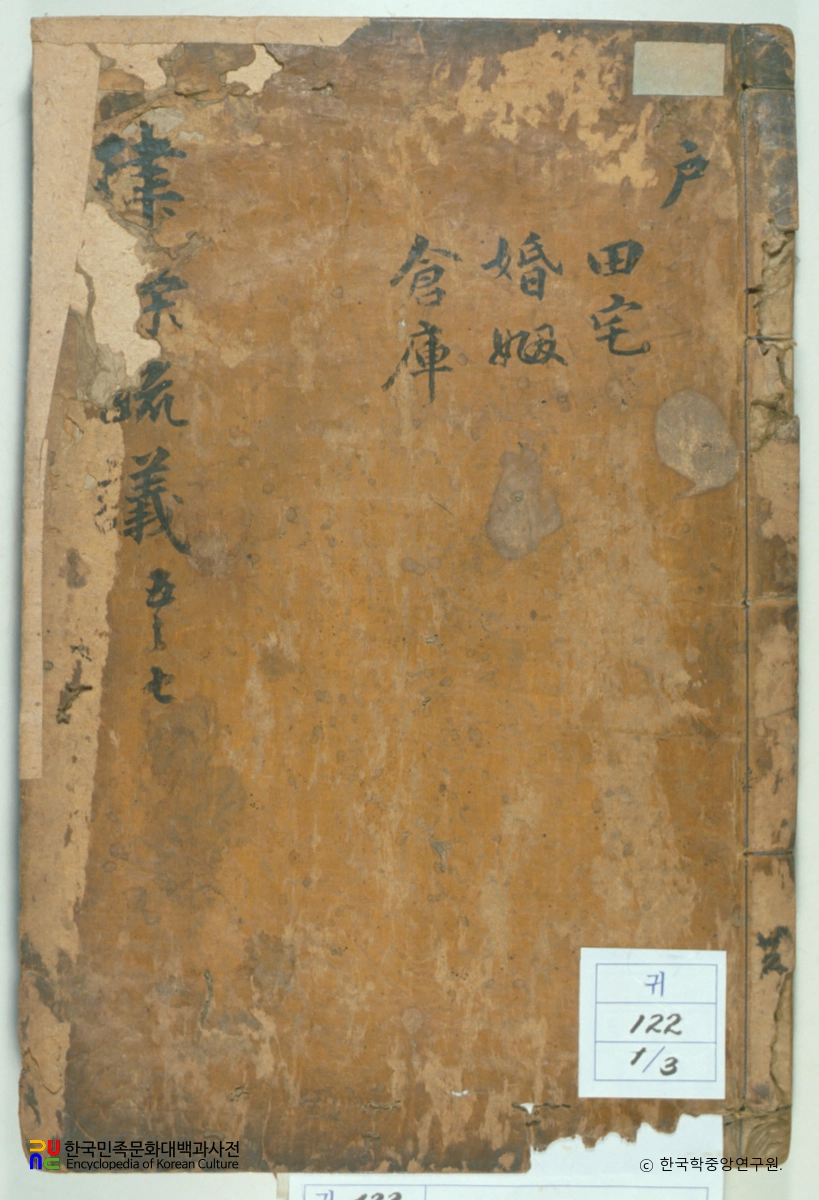 戶
田宅
婚姻
倉庫
律宗疏義 五之七
귀
122
1/3
한국민족문화대백과사전
Encyclopedia of Korean Culture
© 한국학중앙연구원.
귀 122